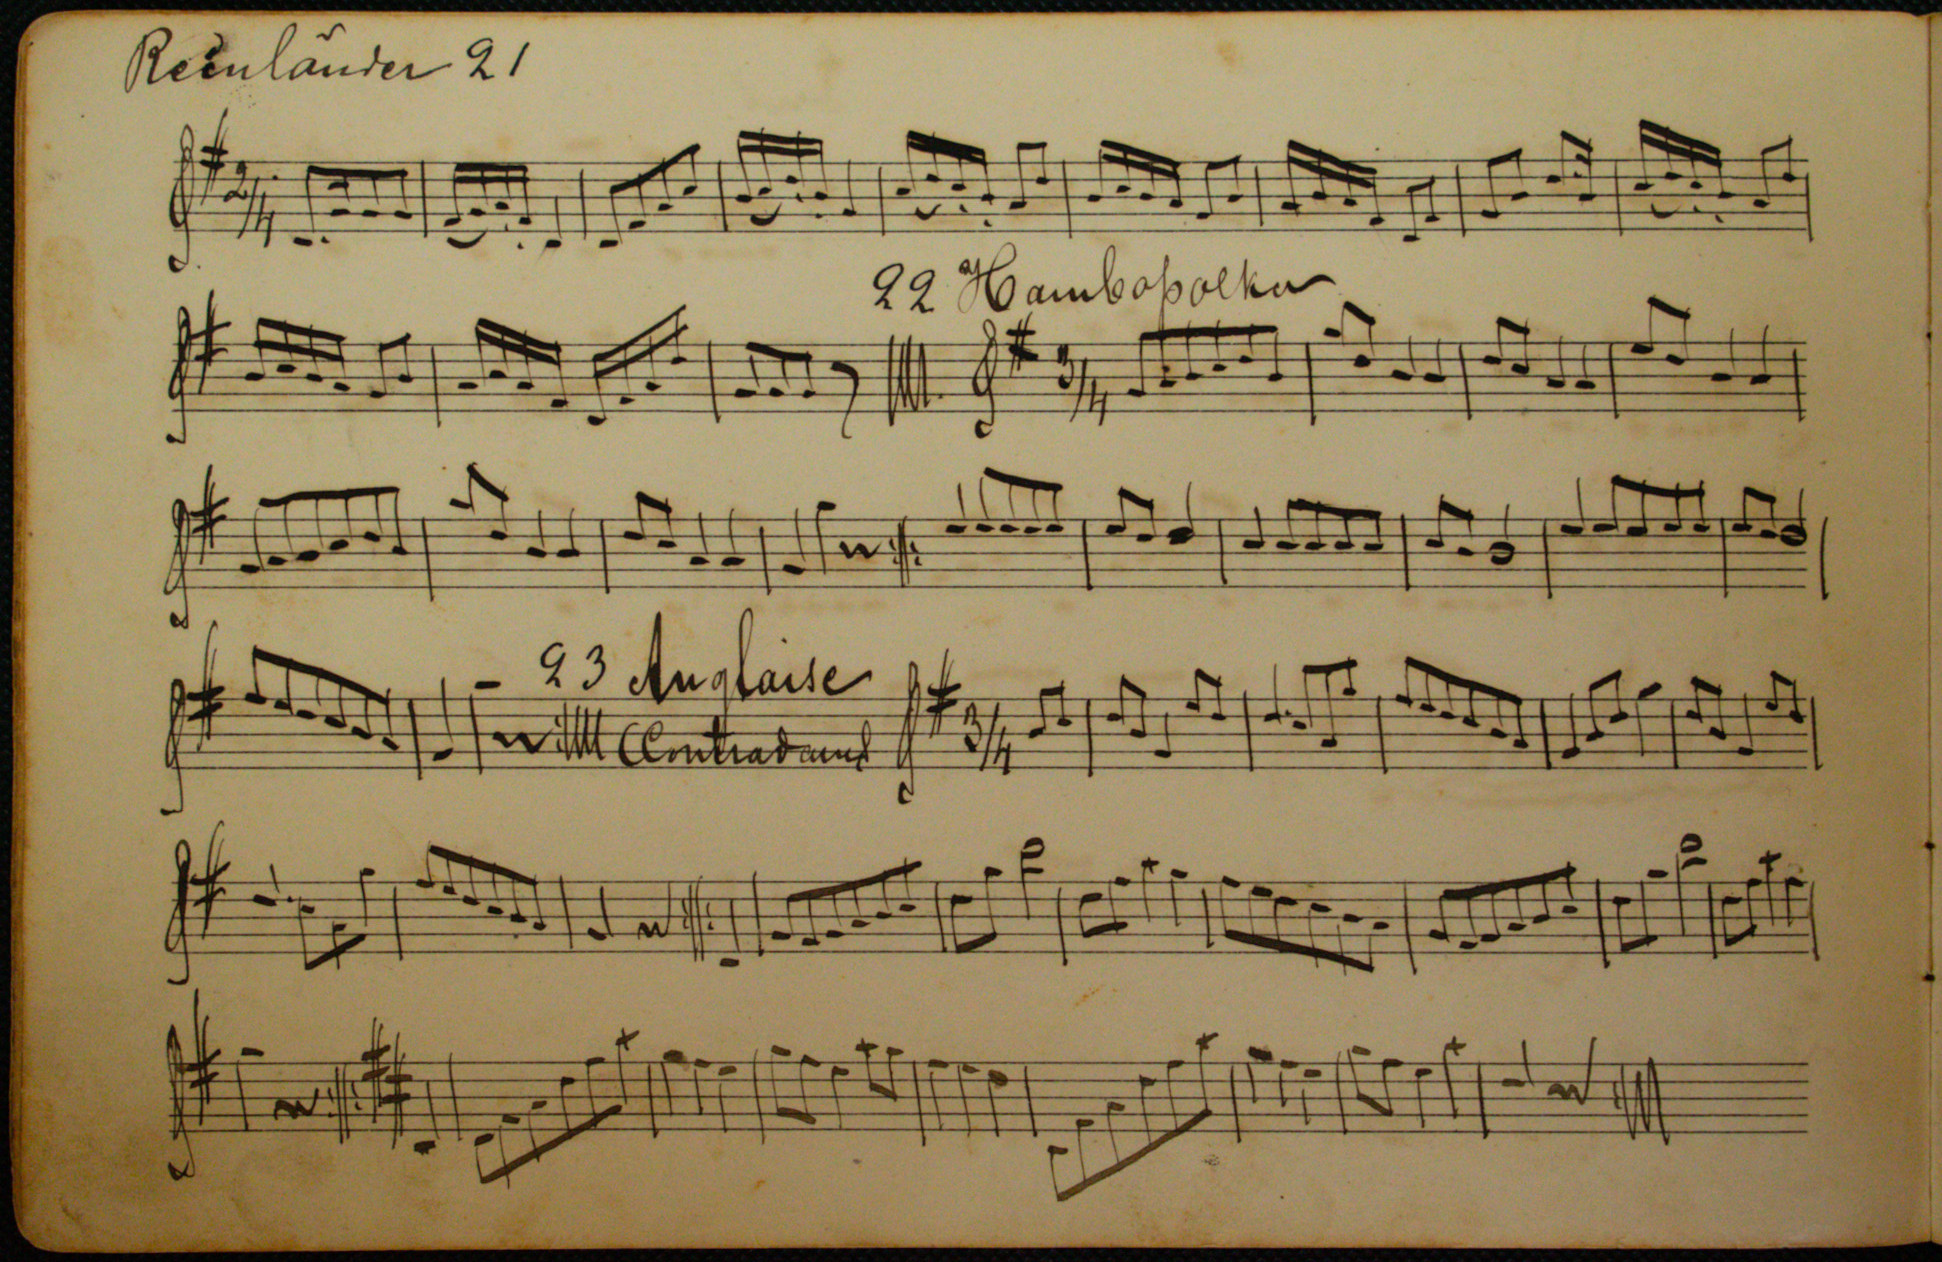 Reinländer 21
2/4
22 Hambopolka
3/4
23 Anglaise
(Contradans)
3/4